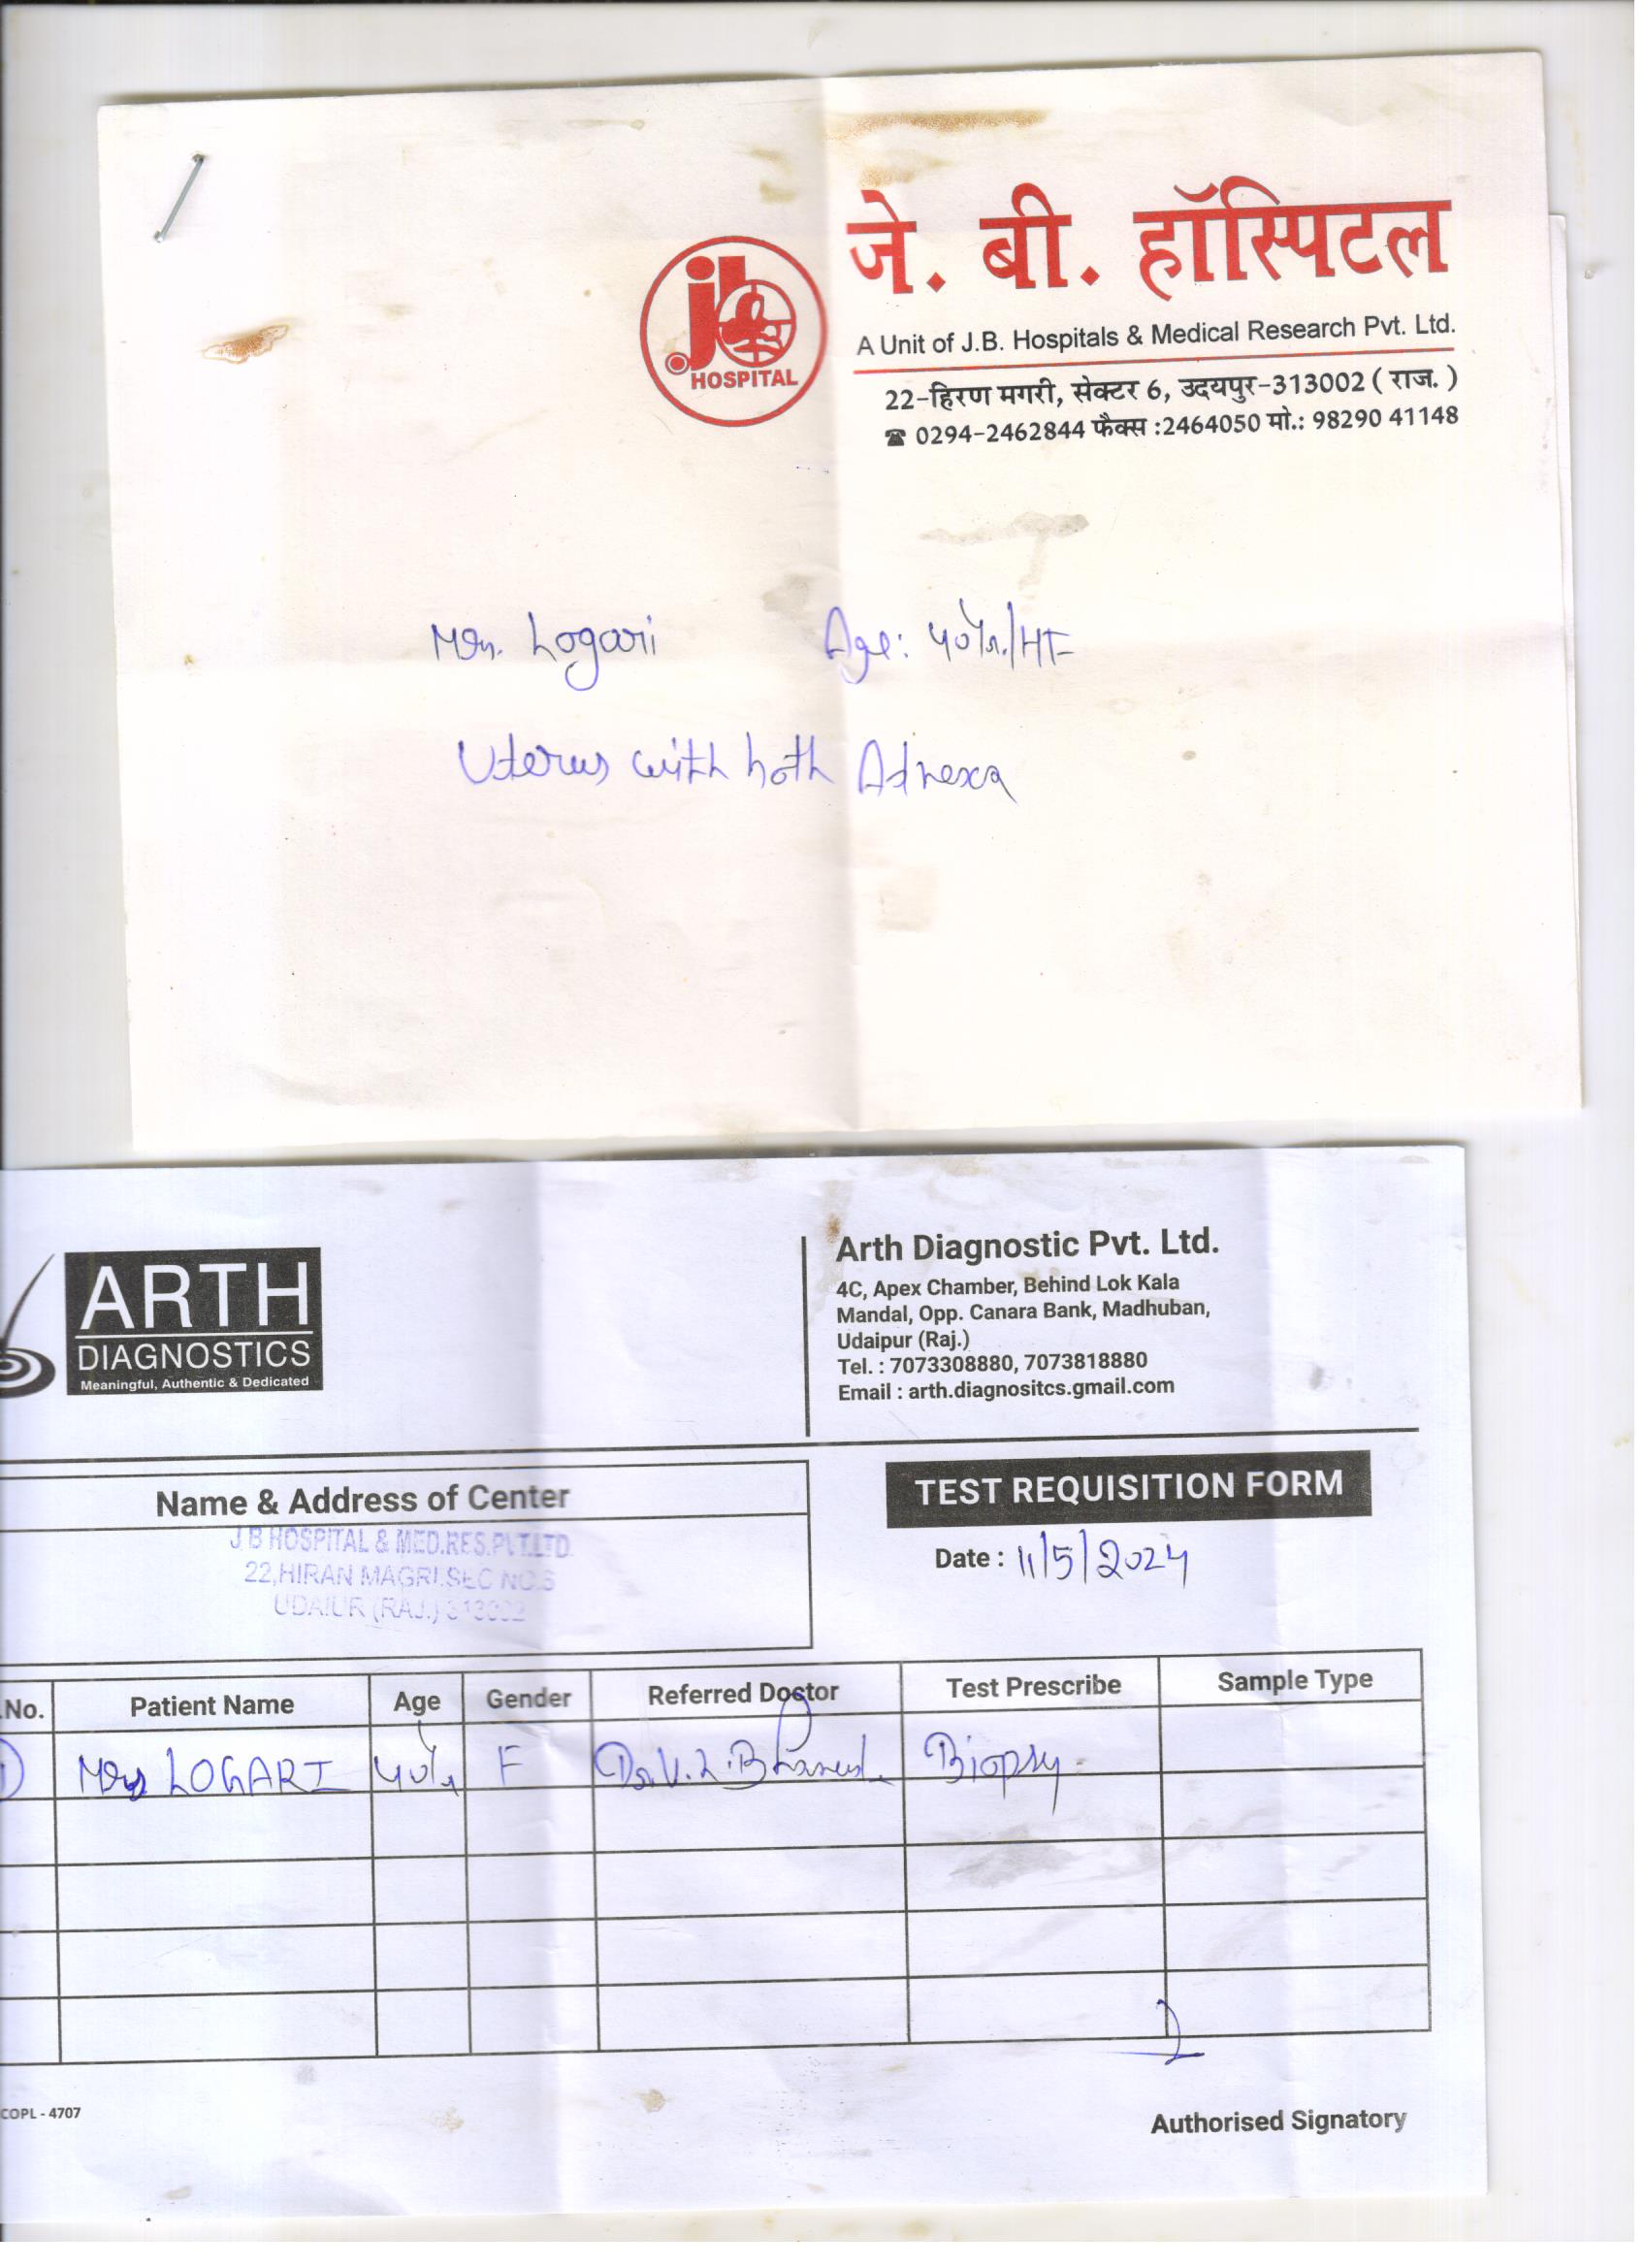 जे. बी. हॉस्पिटल
jb
HOSPITAL
A Unit of J.B. Hospitals & Medical Research Pvt. Ltd.
22-हिरण मगरी, सेक्टर 6, उदयपुर-313002 ( राज. )
☎ 0294-2462844 फैक्स :2464050 मो.: 98290 41148
Mrs. Logari Age: 40Yr./HF
Uterus with both Adnexa
ARTH
DIAGNOSTICS
Meaningful, Authentic & Dedicated
Arth Diagnostic Pvt. Ltd.
4C, Apex Chamber, Behind Lok Kala
Mandal, Opp. Canara Bank, Madhuban,
Udaipur (Raj.)
Tel. : 7073308880, 7073818880
Email : arth.diagnositcs.gmail.com
Name & Address of Center
J B HOSPITAL & MED.RES.PVT.LTD
22,HIRAN MAGRI.SEC NO
UDAIUR (RAJ.) 313002
TEST REQUISITION FORM
Date : 11/5/2024
.No. Patient Name Age Gender Referred Doctor Test Prescribe Sample Type
1) Mrs LOGARI 40Yr F Dr. V. L. Biopsy
COPL - 4707
Authorised Signatory